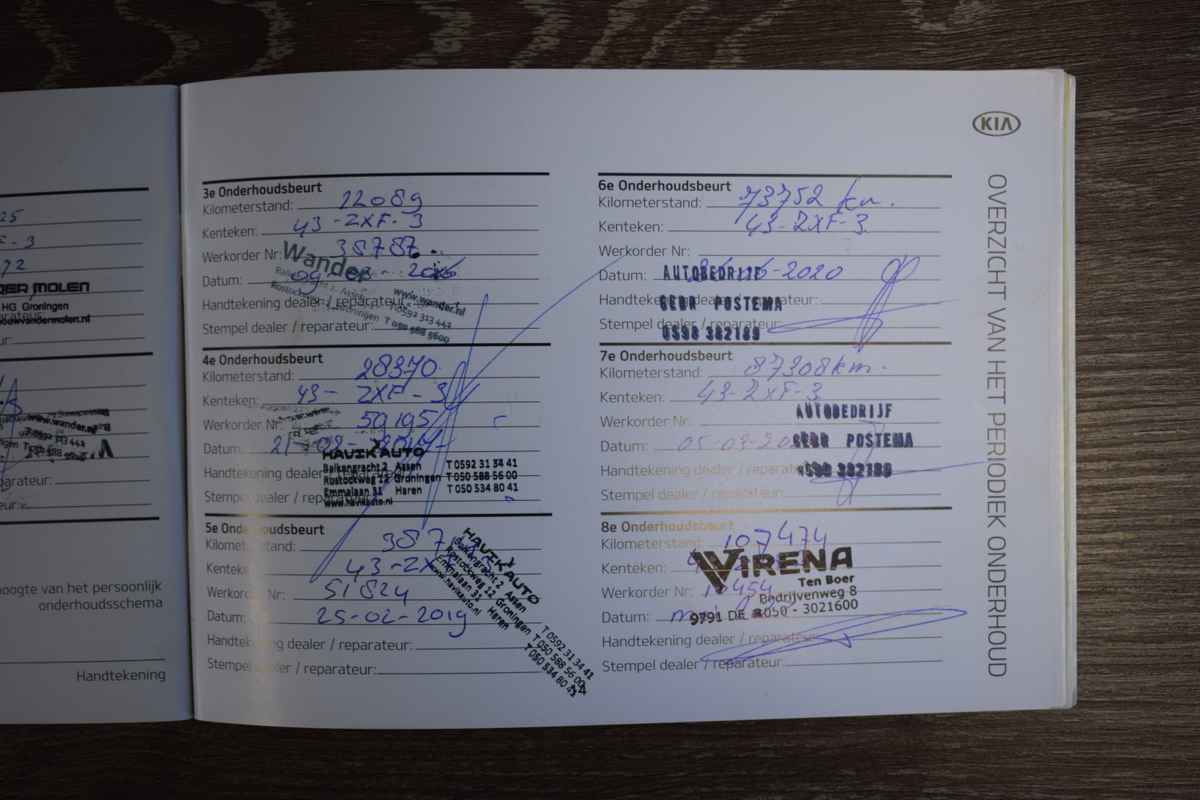 25
- 3
DER MOLEN
HG Groningen
uwvandermolen.nl
T 0592 313 442
hoogte van het persoonlijk
onderhoudsschema
Handtekening
3e Onderhoudsbeurt
Kilometerstand: 12089
Kenteken: 43-ZXF-3
Werkorder Nr: 38787
Wander
Datum: 09-03-2016
www.wander.nl
T 0592 313 442
Handtekening dealer / reparateur:
T 050 588 5600
Stempel dealer / reparateur:
4e Onderhoudsbeurt
Kilometerstand: 28370
Kenteken: 43-ZXF-3
Werkorder Nr: 50195
Datum: 21-02-
HAVIK AUTO
Balkangracht 2 Assen T 0592 31 34 41
Handtekening dealer / reparateur:
Rostockweg 12 Groningen T 050 588 56 00
Emmalaan 31 Haren T 050 534 80 41
Stempel dealer / reparateur:
www.havikauto.nl
5e Onderhoudsbeurt
Kilometerstand: 387
Kenteken: 43-ZXF
Werkorder Nr: 51824
Datum: 25-02-2019
HAVIK AUTO
Balkangracht 2 Assen T 0592 31 34 41
Rostockweg 12 Groningen T 050 588 56 00
Emmalaan 31 Haren T 050 534 80 41
www.havikauto.nl
Handtekening dealer / reparateur:
Stempel dealer / reparateur:
KIA
6e Onderhoudsbeurt
Kilometerstand: 73752 km.
Kenteken: 43-ZXF-3
Werkorder Nr:
Datum: -2020
AUTOBEDRIJF
Handtekening dealer / reparateur:
GEBR POSTEMA
Stempel dealer / reparateur:
0598 382189
7e Onderhoudsbeurt
Kilometerstand: 87308 km.
Kenteken: 43-ZXF-3
Werkorder Nr:
AUTOBEDRIJF
Datum: 05-07-20
GEBR POSTEMA
Handtekening dealer / reparateur:
0598 382189
Stempel dealer / reparateur:
8e Onderhoudsbeurt
Kilometerstand: 107474
Kenteken:
VIRENA
Ten Boer
Werkorder Nr: 10454
Bedrijvenweg 8
Datum:
9791 DE 050 - 3021600
Handtekening dealer / reparateur:
Stempel dealer / reparateur:
OVERZICHT VAN HET PERIODIEK ONDERHOUD